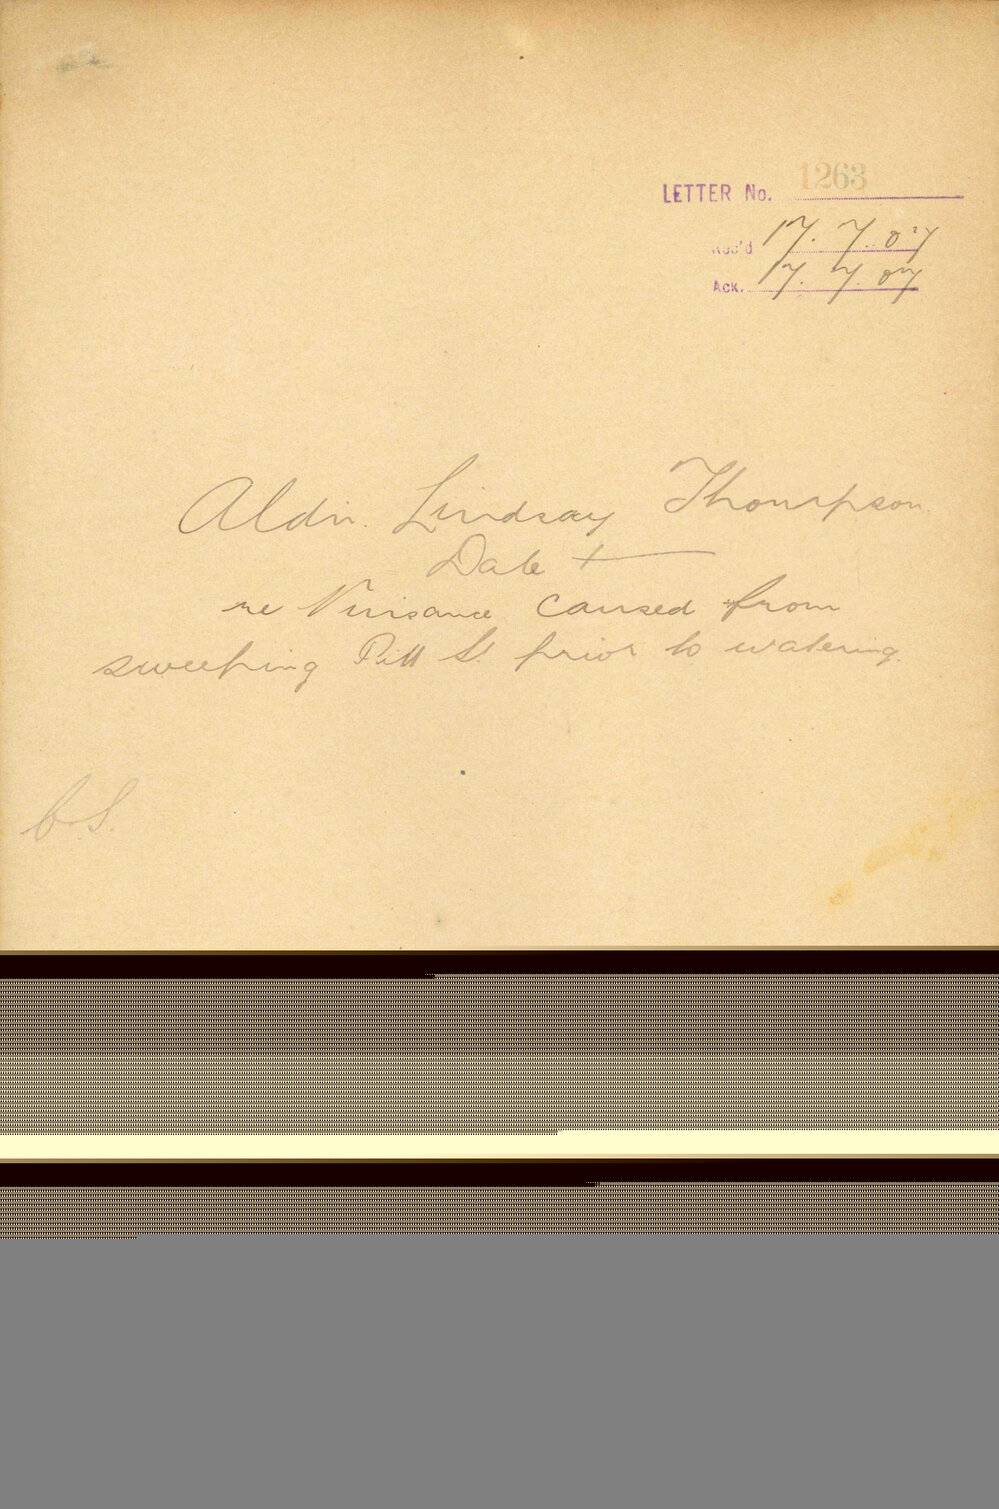 LETTER No. 1263
Rec'd 17.7.07
Ack. 17.7.07
Aldn. Lindsay Thompson.
Date
re Nuisance caused from
sweeping Pitt St. prior to watering.
C.S.